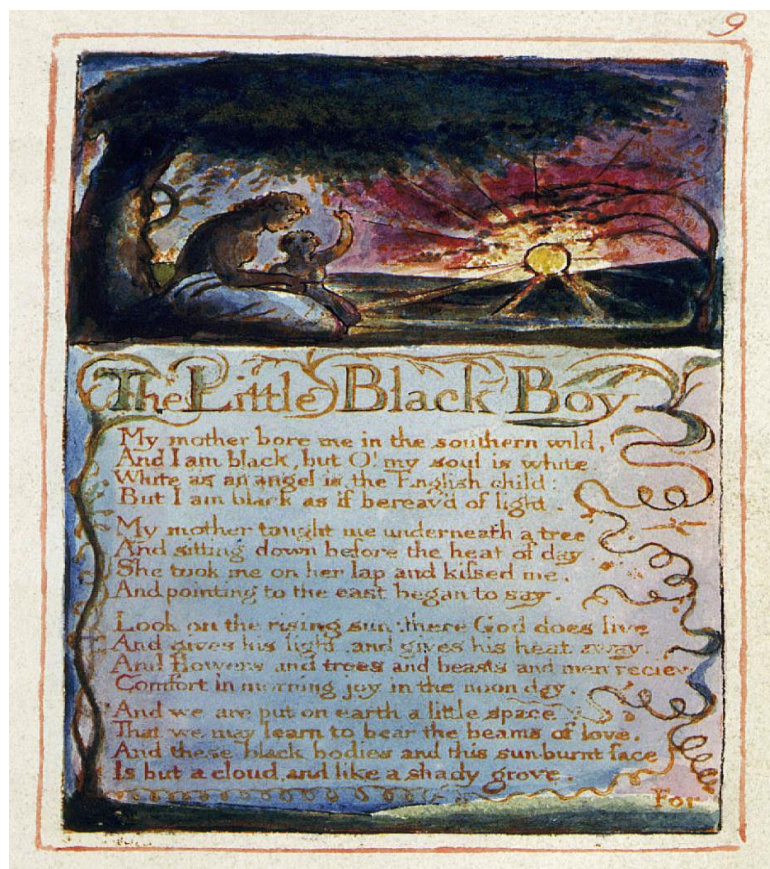 9
The Little Black Boy
My mother bore me in the southern wild,
And I am black, but O! my soul is white.
White as an angel is the English child:
But I am black as if bereav'd of light.
My mother taught me underneath a tree
And sitting down before the heat of day
She took me on her lap and kissed me.
And pointing to the east began to say.
Look on the rising sun: there God does live
And gives his light, and gives his heat away.
And flowers and trees and beasts and men recieve
Comfort in morning joy in the noon day.
And we are put on earth a little space
That we may learn to bear the beams of love.
And these black bodies and this sun-burnt face
Is but a cloud, and like a shady grove.
For